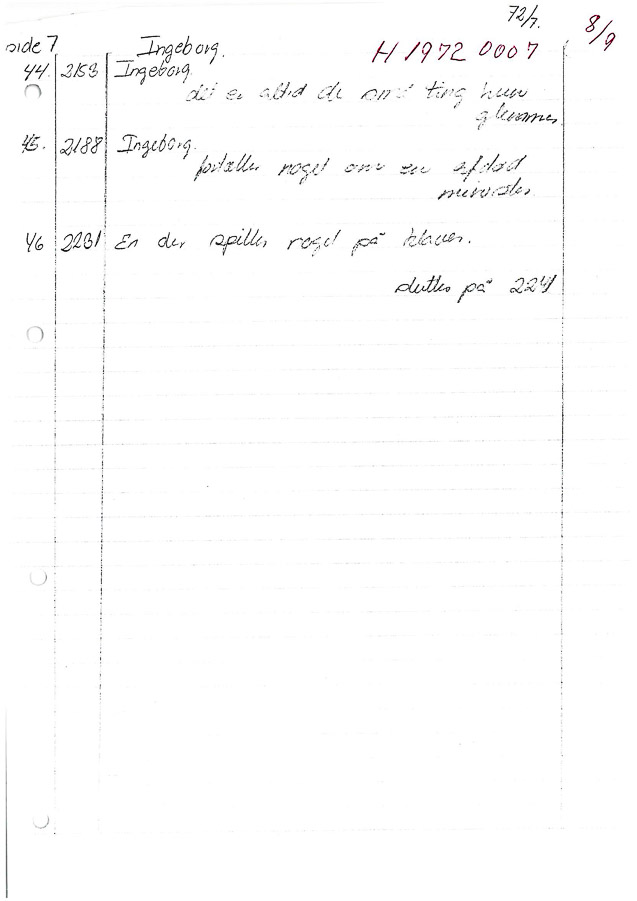 72/7.
8/9
side 7 Ingeborg. H 1972 0007
44. 2153 Ingeborg.
det er altid de små ting hun
glemmer.
45. 2188 Ingeborg.
fortæller noget om en afdød
46 2231 En der spiller noget på klaver.
sluttes på 2241